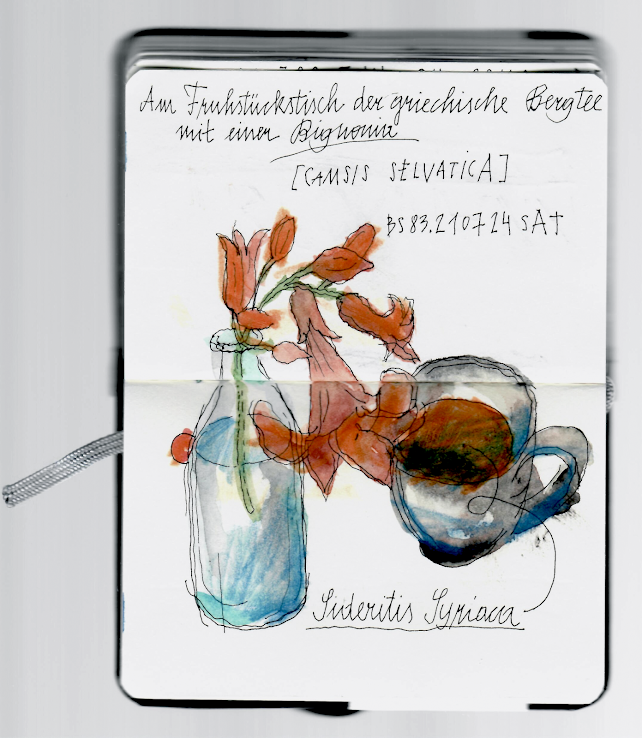 Am Frühstückstisch der griechische Bergtee
mit einer Bignonia
[CAMSIS SELVATICA]
BS83.210724 SAT
Sideritis Syriaca